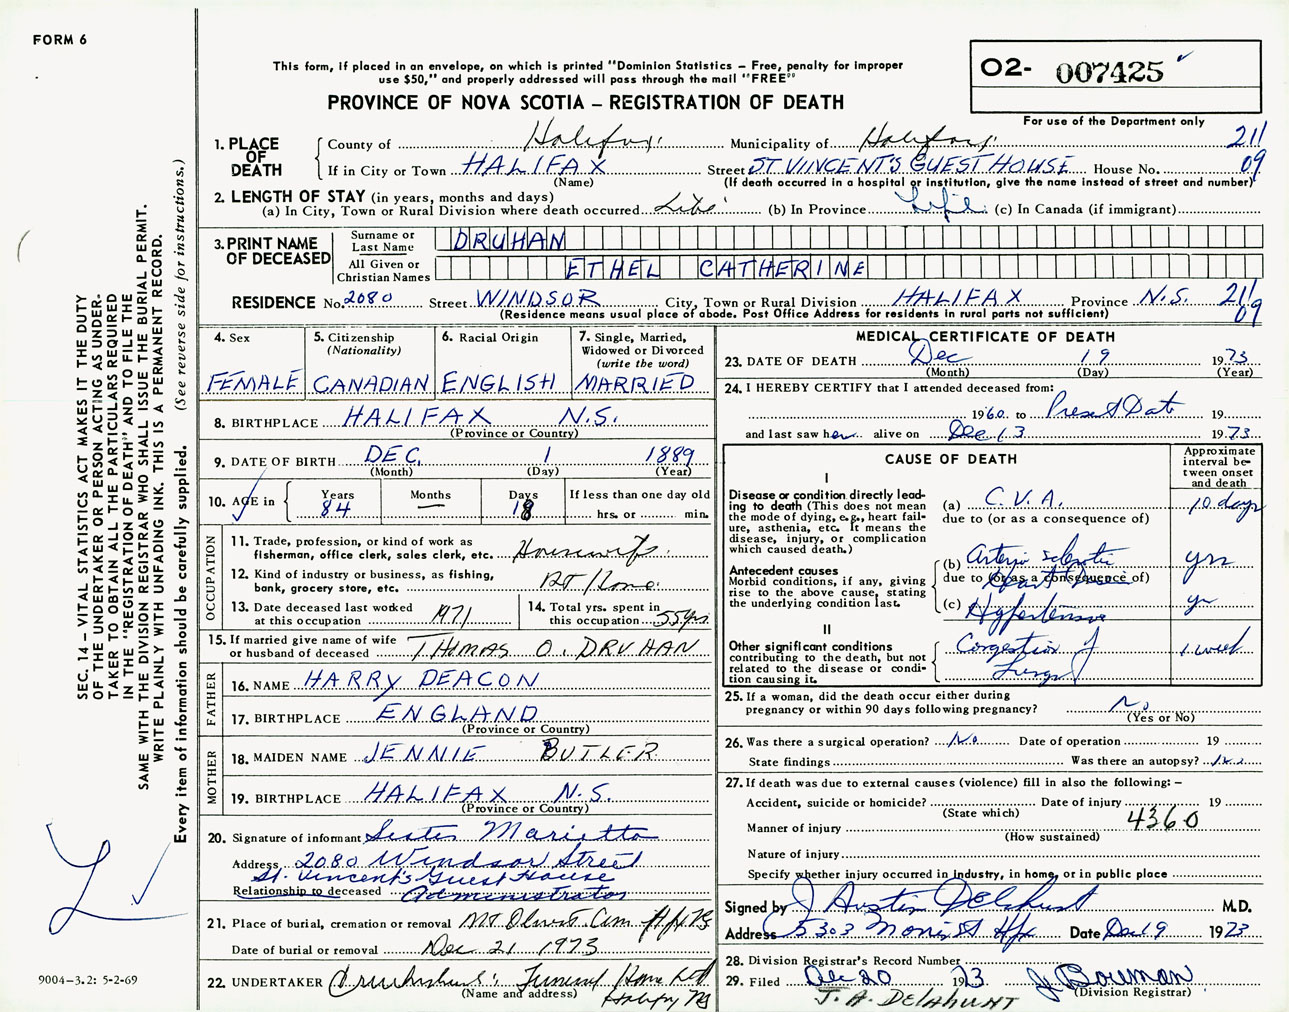 FORM 6
This form, if placed in an envelope, on which is printed "Dominion Statistics – Free, penalty for improper
use $50," and properly addressed will pass through the mail "FREE"
PROVINCE OF NOVA SCOTIA – REGISTRATION OF DEATH
02- 007425
For use of the Department only
1. PLACE OF DEATH
County of Halifax Municipality of Halifax 211
If in City or Town HALIFAX Street ST VINCENT'S GUEST HOUSE House No. 09
(Name) (If death occurred in a hospital or institution, give the name instead of street and number)
2. LENGTH OF STAY (in years, months and days)
(a) In City, Town or Rural Division where death occurred Life (b) In Province Life (c) In Canada (if immigrant)
3. PRINT NAME OF DECEASED
Surname or Last Name DRUHAN
All Given or Christian Names ETHEL CATHERINE
RESIDENCE No. 2080 Street WINDSOR City, Town or Rural Division HALIFAX Province N.S. 211
(Residence means usual place of abode. Post Office Address for residents in rural parts not sufficient) 09
4. Sex
FEMALE
5. Citizenship
(Nationality)
CANADIAN
6. Racial Origin
ENGLISH
7. Single, Married,
Widowed or Divorced
(write the word)
MARRIED
8. BIRTHPLACE HALIFAX N.S.
(Province or Country)
9. DATE OF BIRTH DEC. 1 1889
(Month) (Day) (Year)
10. AGE in
Years Months Days If less than one day old
84 — 18 hrs. or min.
OCCUPATION
11. Trade, profession, or kind of work as
fisherman, office clerk, sales clerk, etc. Housewife
12. Kind of industry or business, as fishing,
bank, grocery store, etc. At Home
13. Date deceased last worked
at this occupation 1971
14. Total yrs. spent in
this occupation 55 yrs
15. If married give name of wife
or husband of deceased THOMAS O. DRUHAN
FATHER
16. NAME HARRY DEACON
17. BIRTHPLACE ENGLAND
(Province or Country)
MOTHER
18. MAIDEN NAME JENNIE BUTLER
19. BIRTHPLACE HALIFAX N.S.
(Province or Country)
20. Signature of informant Sister Marietta
Address 2080 Windsor Street
St. Vincent's Guest House
Relationship to deceased Administrator
21. Place of burial, cremation or removal Mt Olivet Cem Hfx NS
Date of burial or removal Dec 21 1973
22. UNDERTAKER Funeral Home Ltd
(Name and address) Halifax NS
MEDICAL CERTIFICATE OF DEATH
23. DATE OF DEATH Dec 19 1973
(Month) (Day) (Year)
24. I HEREBY CERTIFY that I attended deceased from:
1960 to Present Date 19
and last saw her alive on Dec 13 1973
CAUSE OF DEATH
Approximate
interval be-
tween onset
and death
I
Disease or condition directly lead-
ing to death (This does not mean
the mode of dying, e.g., heart fail-
ure, asthenia, etc. It means the
disease, injury, or complication
which caused death.)
(a) C.V.A. 10 days
due to (or as a consequence of)
Antecedent causes
Morbid conditions, if any, giving
rise to the above cause, stating
the underlying condition last.
(b) Arterio sclerotic yrs
due to (or as a consequence of)
(c) Hypertensive yr
II
Other significant conditions
contributing to the death, but not
related to the disease or condi-
tion causing it.
Congestion of 1 week
Lungs
25. If a woman, did the death occur either during
pregnancy or within 90 days following pregnancy? No
(Yes or No)
26. Was there a surgical operation? No Date of operation 19
State findings Was there an autopsy? No
27. If death was due to external causes (violence) fill in also the following: –
Accident, suicide or homicide? Date of injury 19
(State which) 4360
Manner of injury
(How sustained)
Nature of injury
Specify whether injury occurred in industry, in home, or in public place
Signed by J Austin Delahunt M.D.
Address 5303 Morris St Hfx Date Dec 19 1973
28. Division Registrar's Record Number
29. Filed Dec 20 1973 J. Bowman
(Division Registrar)
J. A. DELAHUNT
SEC. 14 – VITAL STATISTICS ACT MAKES IT THE DUTY
OF THE UNDERTAKER OR PERSON ACTING AS UNDER-
TAKER TO OBTAIN ALL THE PARTICULARS REQUIRED
IN THE "REGISTRATION OF DEATH" AND TO FILE THE
SAME WITH THE DIVISION REGISTRAR WHO SHALL ISSUE THE BURIAL PERMIT.
WRITE PLAINLY WITH UNFADING INK. THIS IS A PERMANENT RECORD.
Every item of information should be carefully supplied. (See reverse side for instructions.)
9004–3.2: 5-2-69